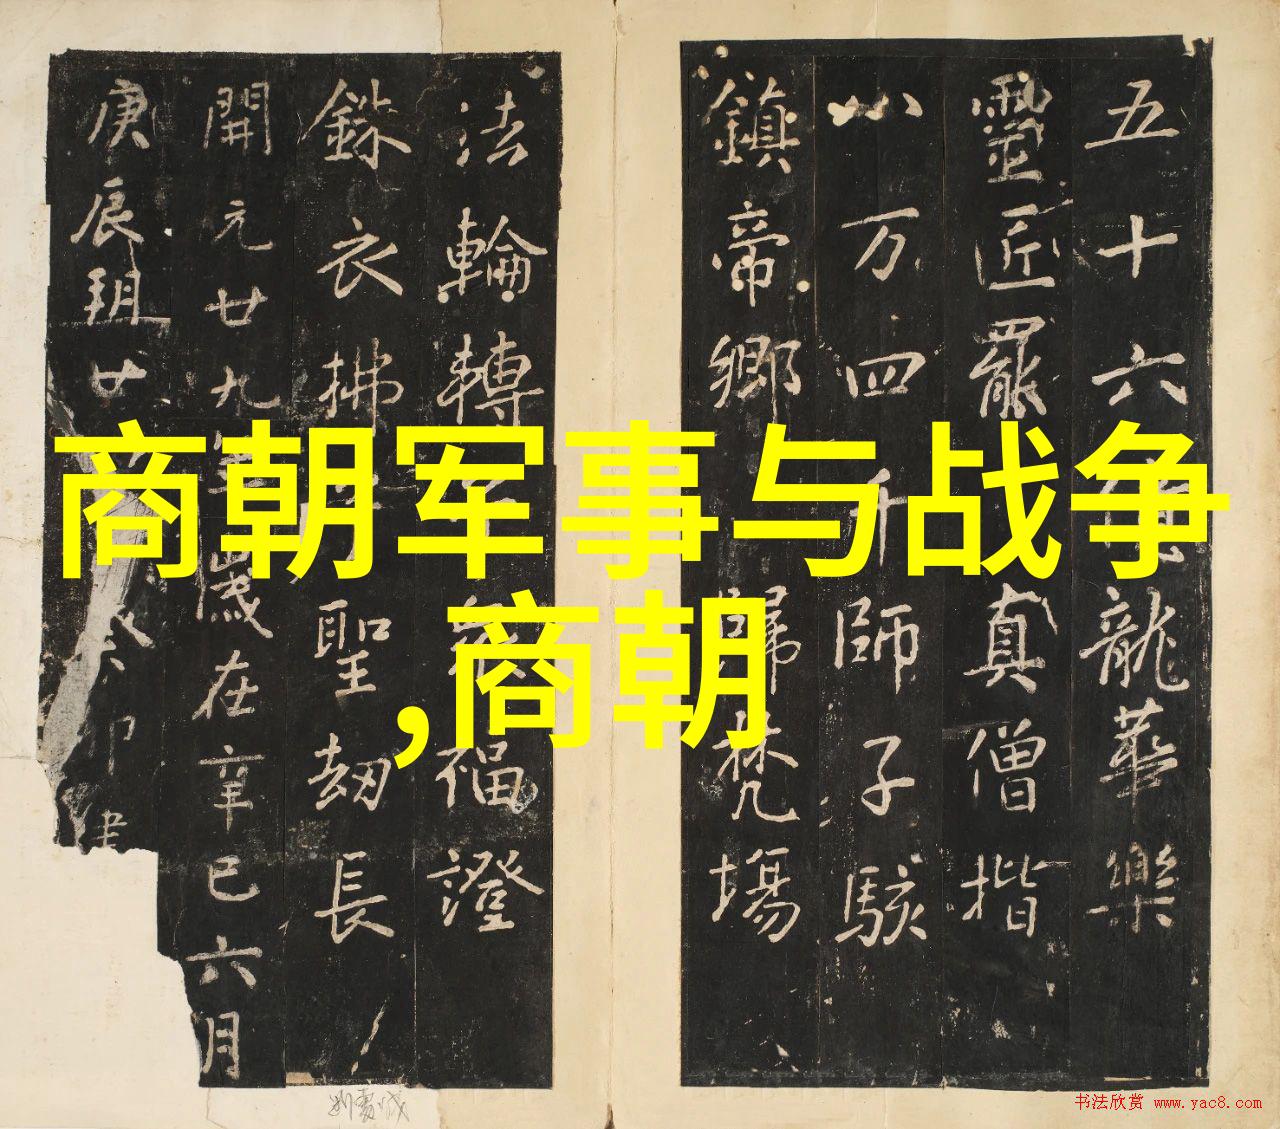 商朝军事与战争
,商朝
五十六龍華樂
靈匠罷真僧揩
八万四千師子駭
鎮帝鄉歸梵場
法輪轉福證
銖衣拂聖劫長
開元廿九年歲在辛巳六月
庚辰朔廿癸卯建
书法欣赏 www.yac8.com